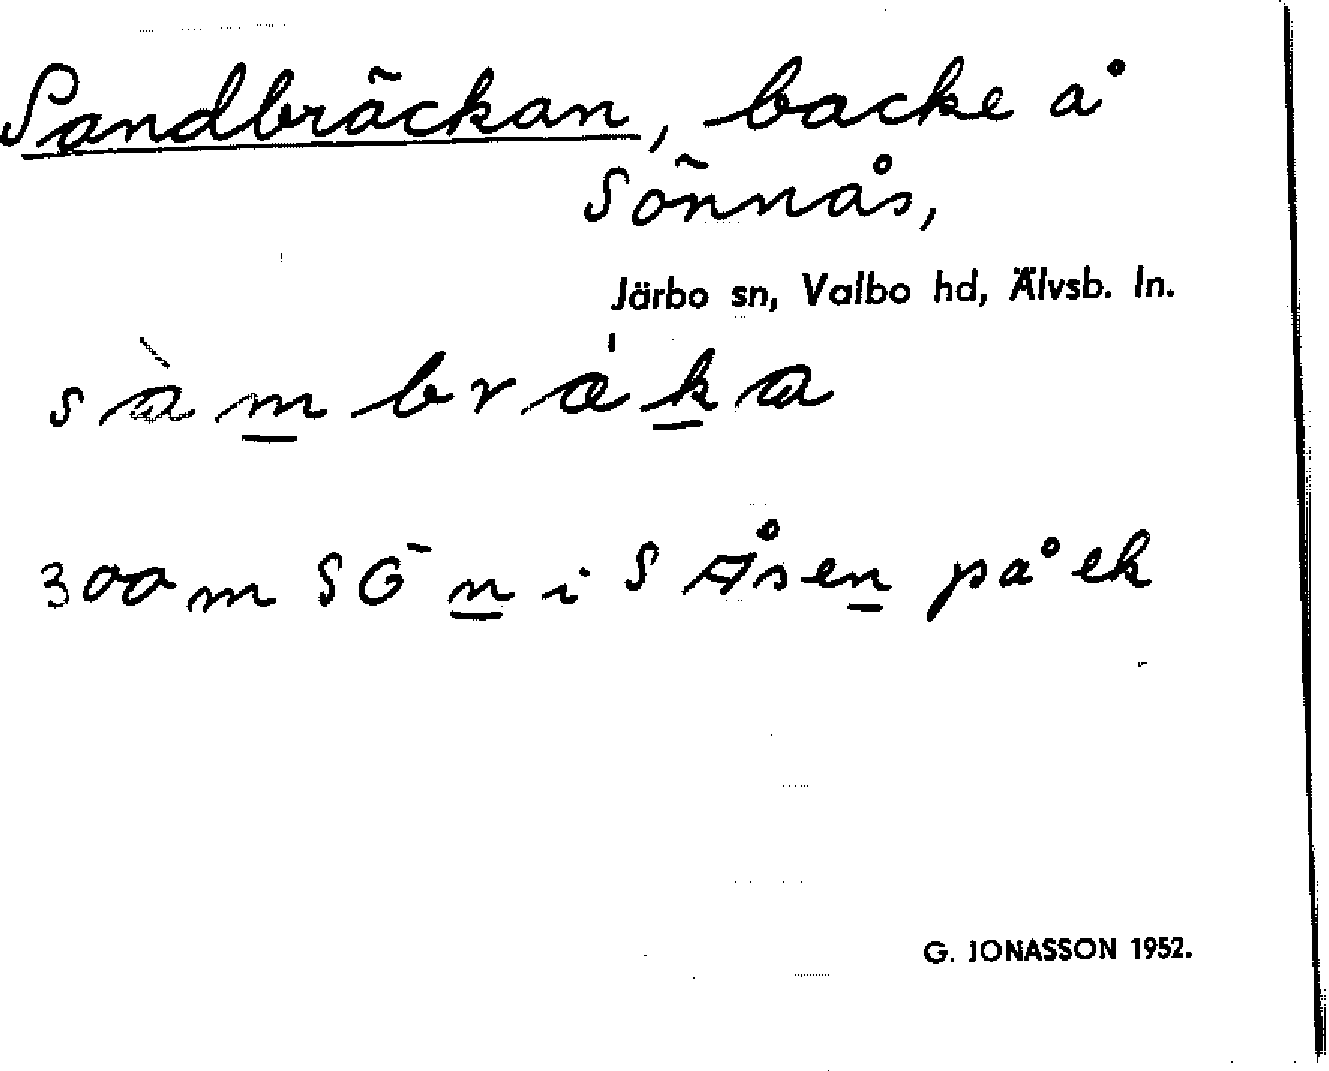 Sandbräckan, backe å
Sönnås,
Järbo sn, Valbo hd, Älvsb. ln.
sàmbráka
300 m SÖ n i S Åsen på ek
G. JONASSON 1952.